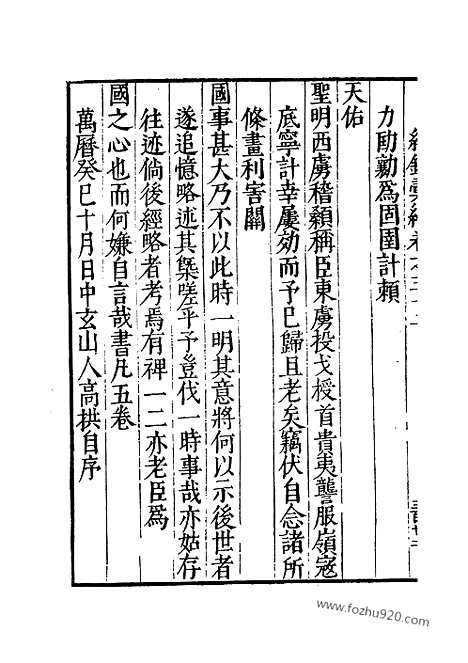 力勛勷為固圉計頼
天佑
聖明西虜稽顙稱臣東虜投戈授首貴夷讋服嶺寇
底寧計幸屢効而予已歸且老矣竊伏自念諸所
條畫利害關
國事甚大乃不以此時一明其意將何以示後世者
遂追憶略述其槩嗟乎予豈伐一時事哉亦姑存
往迹倘後經略者考焉有禆一二亦老臣為
國之心也而何嫌自言哉書凡五卷
萬曆癸巳十月日中玄山人高拱自序
www.fozhu920.com